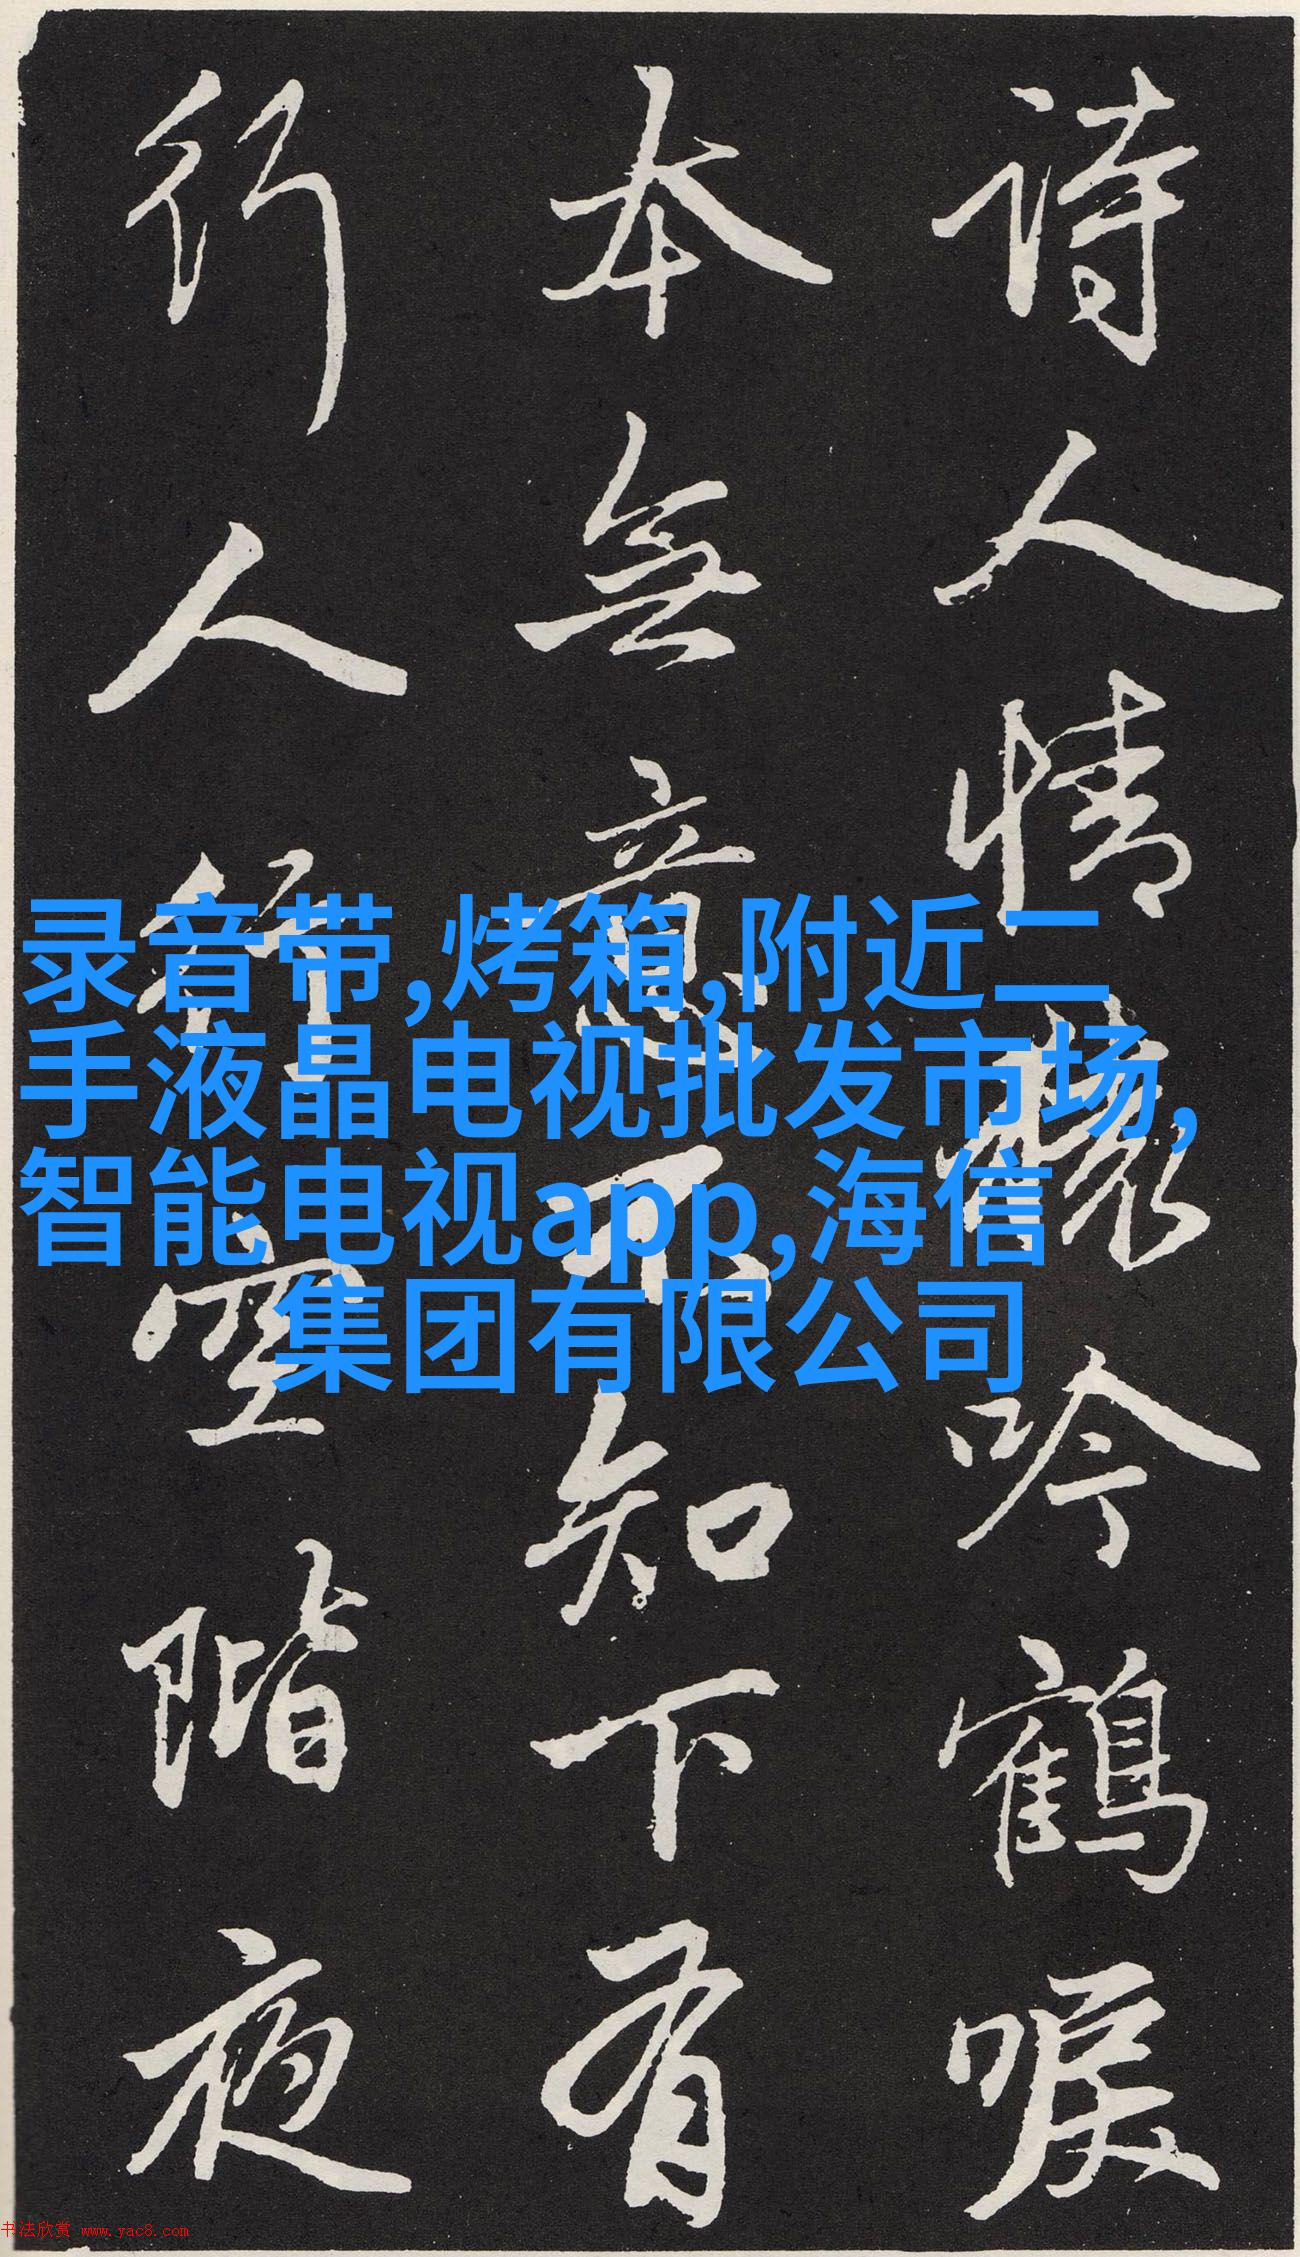 詩人情懷吟鶴唳
本無意不知下有
行人行空階夜
录音带,烤箱,附近二
手液晶电视批发市场,
智能电视app,海信
集团有限公司
书法欣赏 www.yac8.com